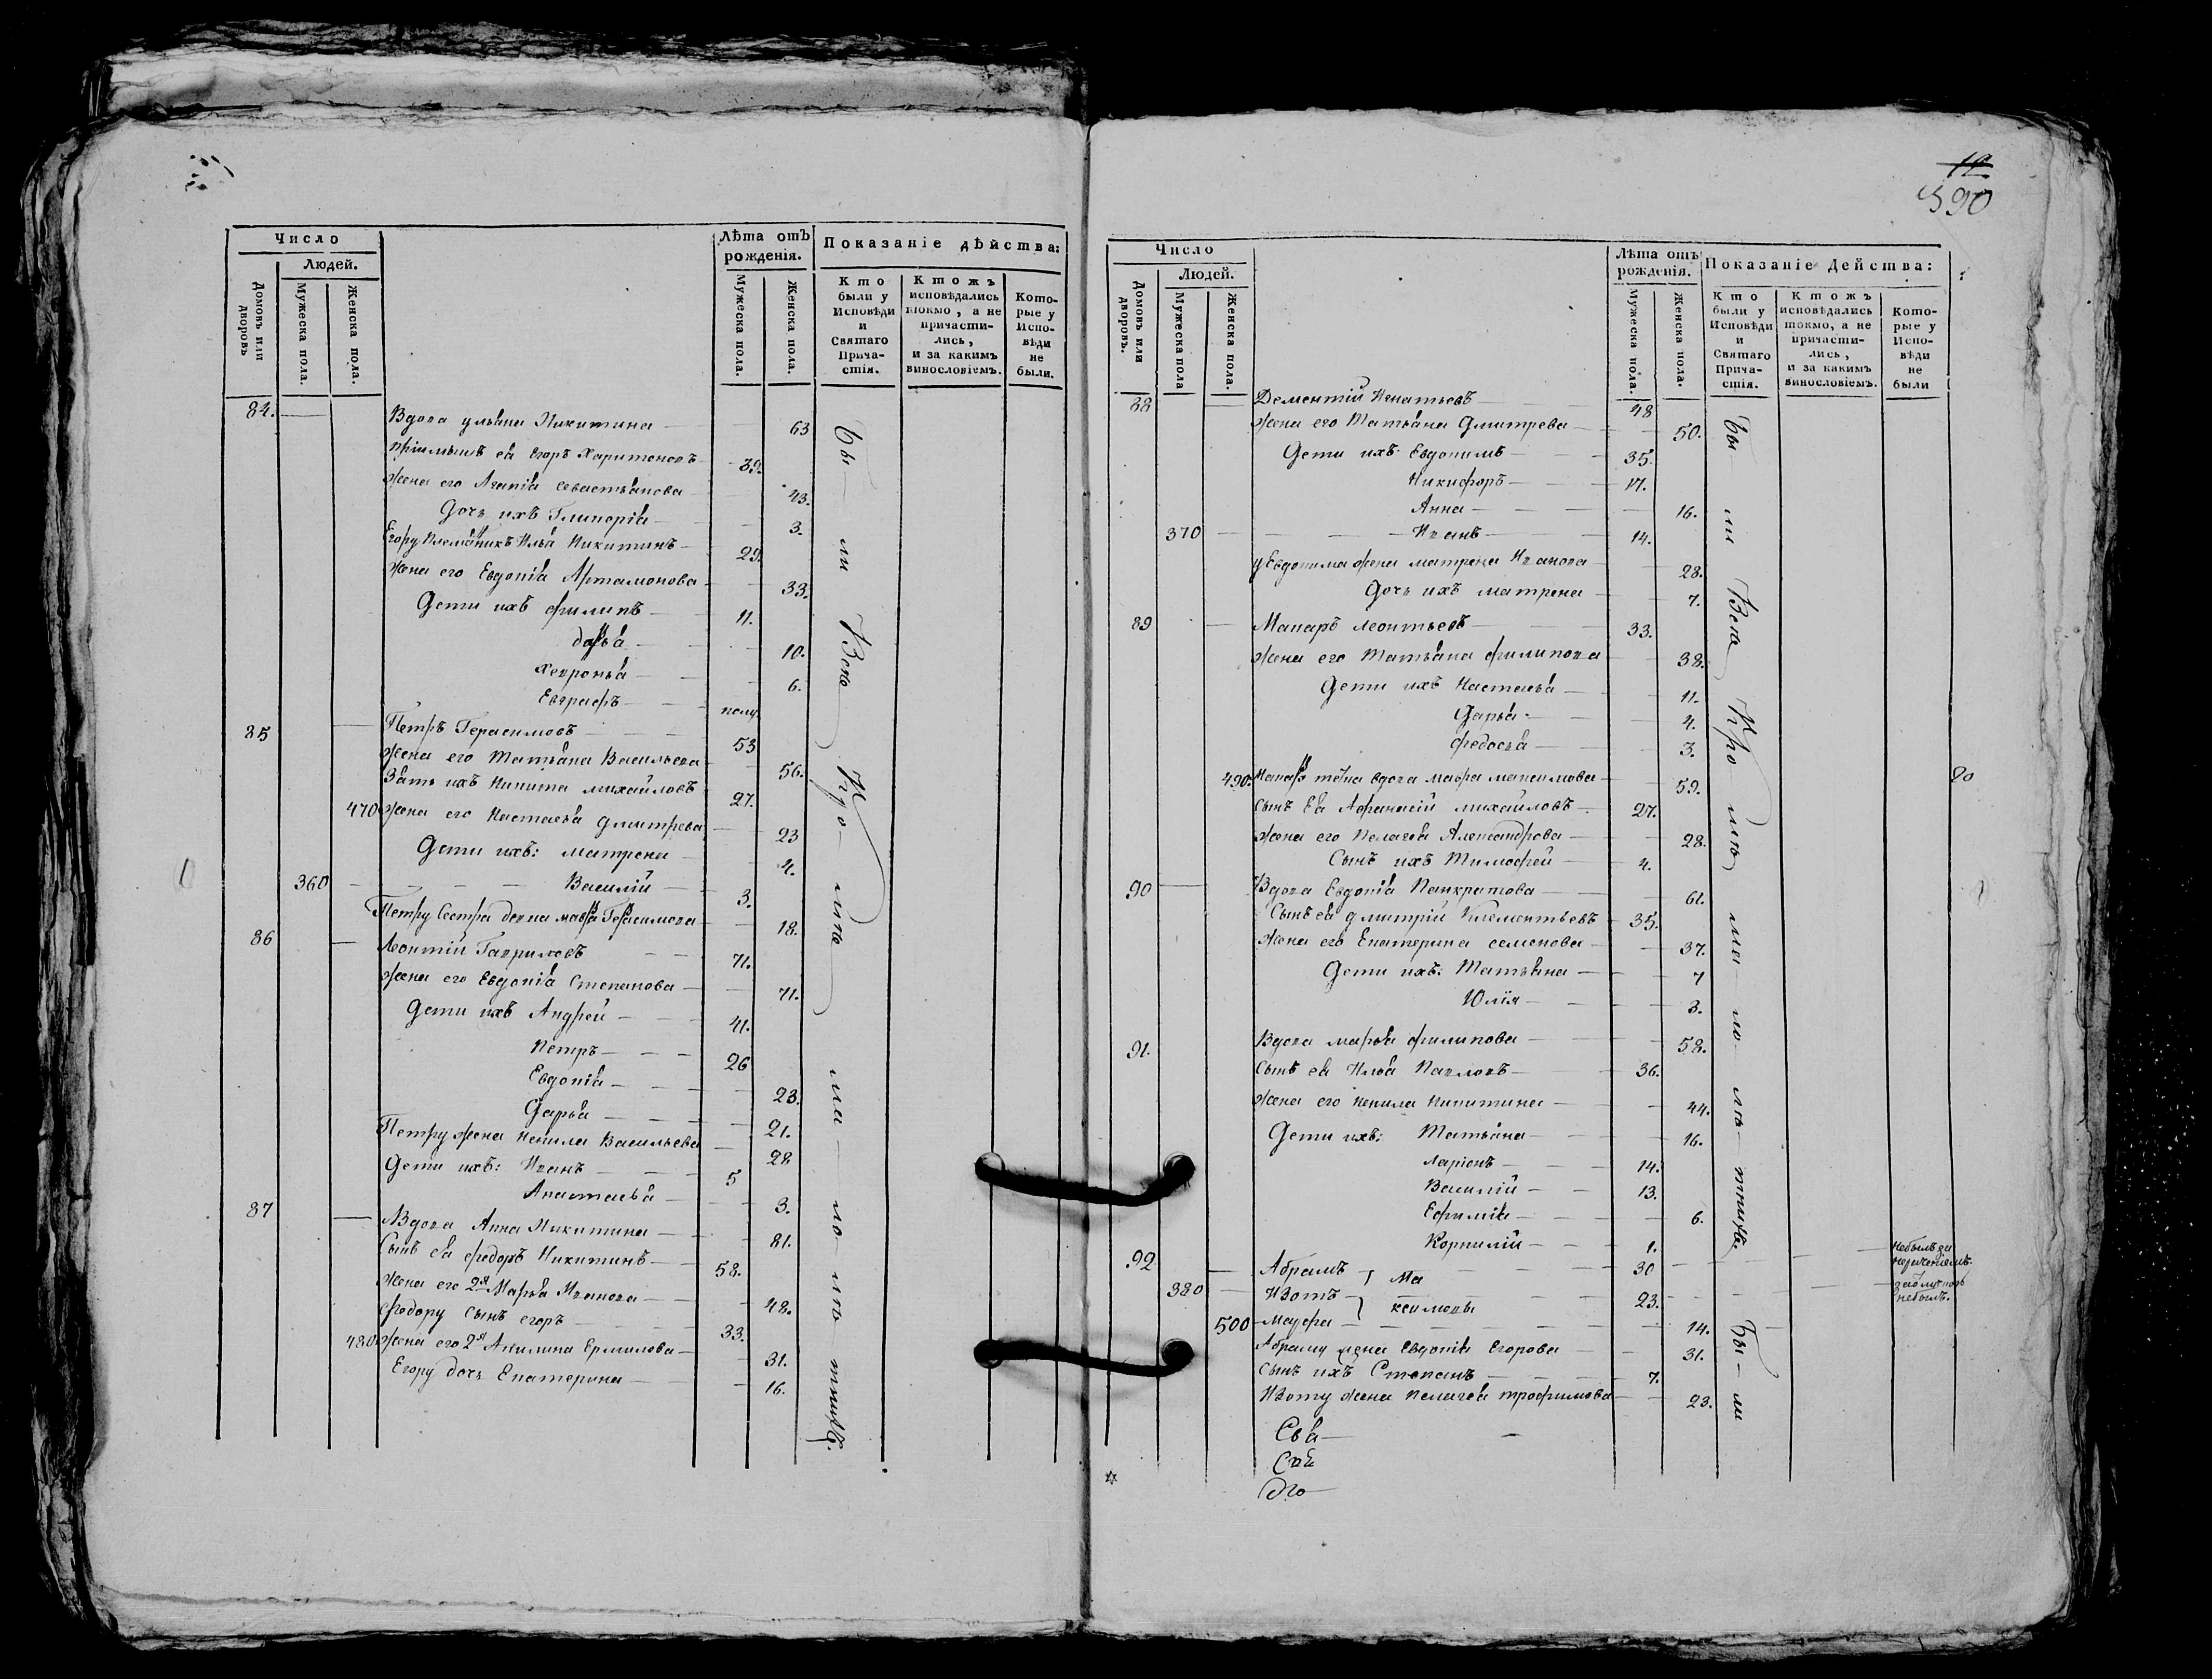 Число
Людей.
Домовъ или дворовъ
Мужеска пола.
Женска пола.
Лѣта отъ рожденія.
Мужеска пола.
Женска пола.
Показаніе дѣйства:
Кто были у Исповѣди и Святаго Прича-стія.
Ктожъ исповѣдались токмо, а не причасти-лись, и за какимъ винословіемъ.
Кото-рые у Испо-вѣди не были.
84. Вдова ульяна Никитина 63
пріимышъ ея Егоръ Харитоновъ 39.
Жена его Агапія севастьянова 43.
Дочь ихъ Гликерія 3.
Егору племянникъ Илья Никитинъ 29.
Жена его Евдокія Артамонова 33.
Дети ихъ филипъ 11.
дарья 10.
Хевронья 6.
Евграфъ полу.
85 Петръ Герасимовъ 53
Жена его Татьяна Васильева 56.
Зять ихъ Никита михайловъ 27.
470 Жена его Настасья дмитрева 23
Дети ихъ: матрена 4.
360 Василій 3.
Петру Сестра девка мавра Герасимова 18.
86 Леонтій Гавриловъ 71.
Жена его Евдокія Степанова 71.
Дети ихъ Андрей 41.
Петръ 26
Евдокія 23.
Дарья 21.
Петру жена Ненила Васильева 28
Дети ихъ: Иванъ 5
Анастасья 3.
87 Вдова Анна Никитина 81.
Сынъ ея федоръ Никитинъ 58.
Жена его 2я Марья Иванова 48.
Федору сынъ егоръ 33.
480 Жена его 2я Акилина Ермилова 31.
Егору дочь Екатерина 16.
Бы ли Все Кро ме ма ло ле тныхъ.
12.
590
Число
Людей.
Домовъ или дворовъ.
Мужеска пола
Женска пола.
Лѣта отъ рожденія.
Мужеска пола.
Женска пола.
Показаніе Действа:
Кто были у Исповѣди и Святаго Прича-стія.
Ктожъ исповѣдались токмо, а не причасти-лись, и за какимъ винословіемъ.
Кото-рые у Испо-вѣди не были
88 Дементій Игнатьевъ 48
Жена его Татьяна Дмитрева 50.
Дети ихъ Евдокимъ 35.
Никифоръ 17.
Анна 16.
370 Иванъ 14.
у Евдокима жена матрена Иванова 28.
Дочь ихъ матрена 7.
89 Макаръ леонтьевъ 33.
Жена его Татьяна филипова 38.
Дети ихъ Настасья 11.
Дарья 4.
Федосья 3.
490. Макара тетка вдова мавра максимова 59.
Сынъ Ея Афанасій михайловъ 27.
Жена его Пелагея Александрова 28.
Сынъ ихъ Тимофей 4.
90 Вдова Евдокія Панкратова 61.
Сынъ ея дмитрій Клементьевъ 35.
Жена его Екатерина семенова 37.
Дети ихъ: Татьяна 7
Юлія 3.
91. Вдова марья филипова 58.
Сынъ ея Илья Павловъ 36.
Жена его ненила никитина 44.
Дети ихъ: Татьяна 16.
Ларіонъ 14.
Василій 13.
Ефимія 6.
Корнилій 1.
92 Абрамъ 30
380 Изотъ 23.
Ма ксимовы
500 Марфа 14.
Абраму жена Евдокія Егорова 31.
Сынъ ихъ Степанъ 7.
Изоту жена пелагея трофимова 23.
Бы ли Все Кро ме ма ло ле тныхъ.
Бы ли